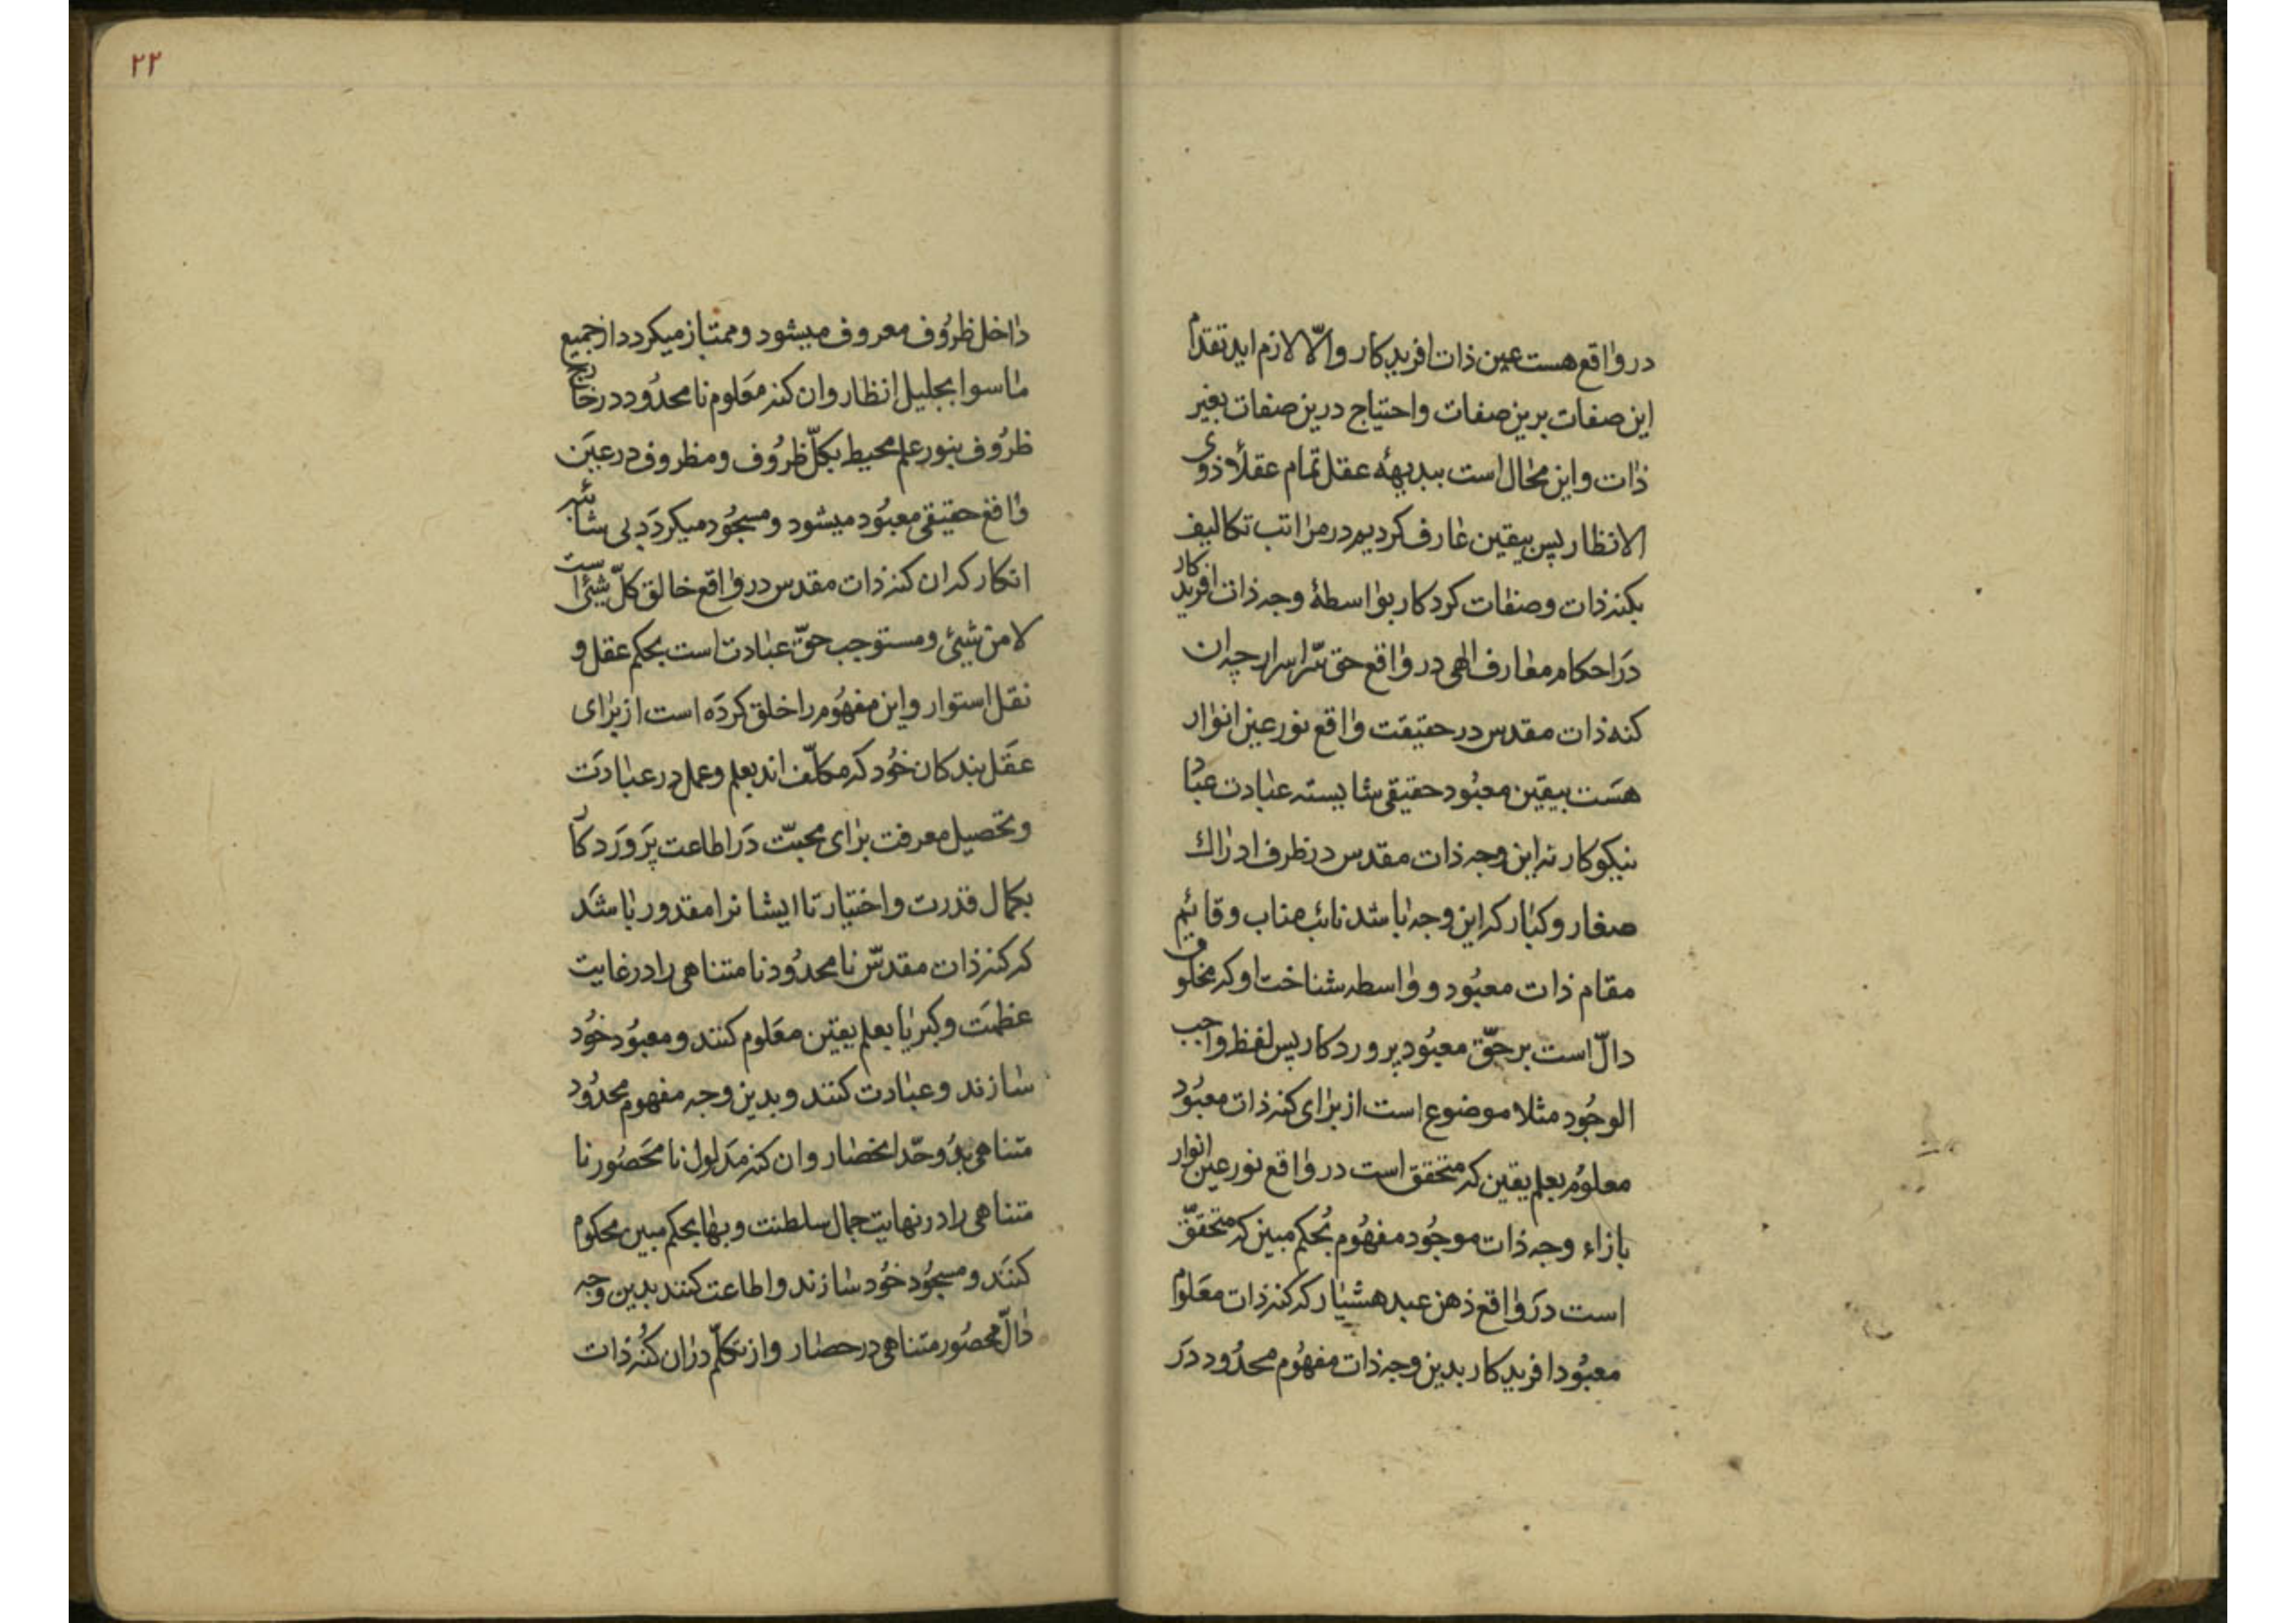 در واقع هست عین ذات افریدکار والّا لازم اید تقدم
این صفات برین صفات واحتیاج درین صفات بغیر
ذات واین محال است ببدیههٔ عقل تمام عقلاٗ ذوی
الانظار پس بیقین عارف کردیم در مراتب تکالیف
بکنه ذات وصفات کردکار بواسطهٔ وجه ذات افریدکار
در احکام معارف الهی در واقع حق سّر اسرار چه ان
کنه ذات مقدس در حقیقت واقع نور عین انوار
هست بیقین معبُود حقیقی شایسته عبادت عباد
نیکوکار نه این وجه ذات مقدس در ظرف ادراك
صغار وکبار که این وجه باشد نائب مناب وقائم
مقام ذات معبُود وواسطه شناخت او که مخلوق
دالّ است بر حقّ معبُود پروردکار پس لفظ واجب
الوجُود مثلا موضوع است از برای کنه ذات معبُود
معلوُم بعلم یقین که متحقق است در واقع نور عین انوار
بازاء وجه ذات موجُود مفهُوم بُحکم مبین که متحقّق
است در واقع ذهن عبد هشیار که کنه ذات معلوم
معبُود افریدکار بدین وجه ذات مفهُوم محدُود در
۲۲
داخل ظرُوف معروف میشود وممتاز میکردد از جمیع
ماسوا بجلیل انظار وان کنه معلوم نا محدُود در خارج
ظرُوف بنور علم محیط بکلّ ظرُوف ومظروف در عین
واقع حقیقی معبُود میشود ومسجُود میکردد بی شائبه
انکار که ان کنه ذات مقدس در واقع خالق کلّ شیٔ است
لا من شیٔ ومستوجب حقّ عبادت است بحکم عقل و
نقل استوار واین مفهُوم را خلق کرده است از برای
عقل بندکان خوُد که مکلّف اند بعلم وعمل در عبادت
وتحصیل معرفت برای محبّت در اطاعت پرَورَدکار
بکمال قدرت واختیار تا ایشانرا مقدور باشد
که کنه ذات مقدسّ نا محدُود نا متناهی را در غایت
عظمت وکبریا بعلم یقین معلوم کنند ومعبوُد خوُد
سازند وعبادت کنند وبدین وجه مفهوم محدُود
متناهی بدُو حّد انحصار وان کنه مدلول نا محصُور نا
متناهی را در نهایت جمال سلطنت وبها بحکم مبین محکوم
کنند ومسجُود خوُد سازند واطاعت کنند بدین وجه
دالّ محصُور متناهی در حصار واز تکلّم در ان کنُه ذات